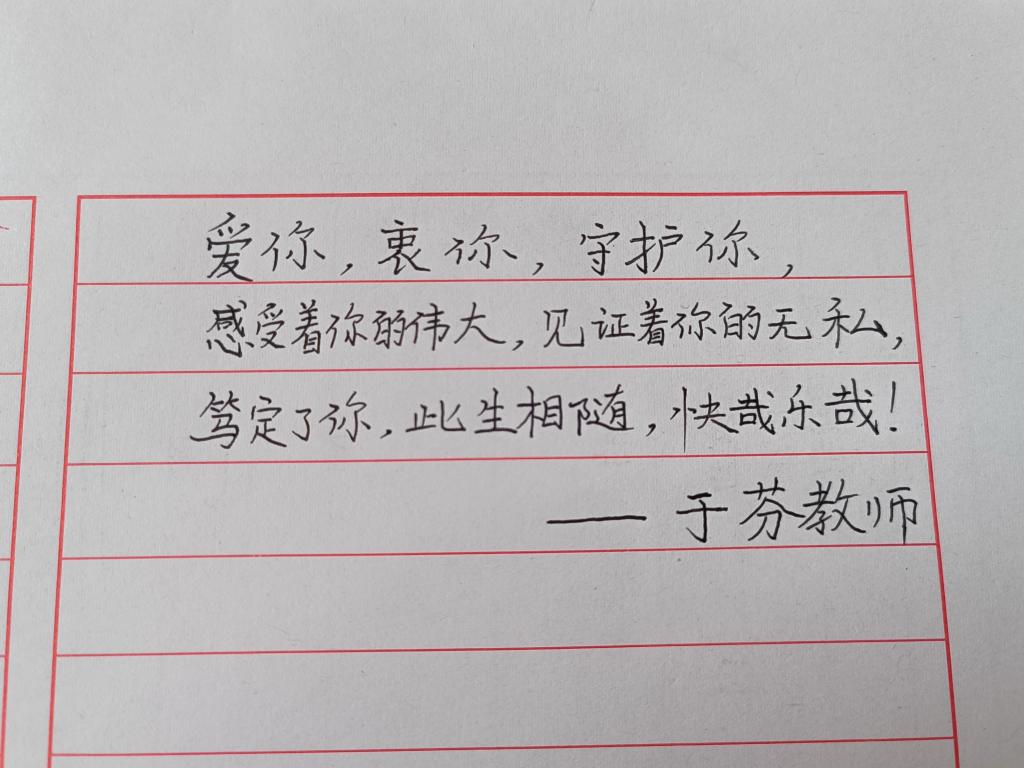 爱你,衷你,守护你,
感受着你的伟大,见证着你的无私,
笃定了你,此生相随,快哉乐哉!
——于芬教师